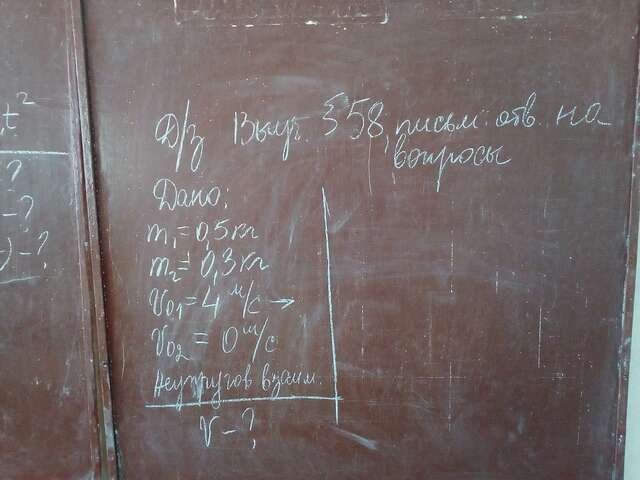 t²
-?
-?
)-?
Д/з Выуч. §58, письм. отв. на
вопросы
Дано:
m₁=0,5кг
m₂=0,3кг
V₀₁=4 м/с →
V₀₂=0 м/с
Неупругов взаим.
V-?